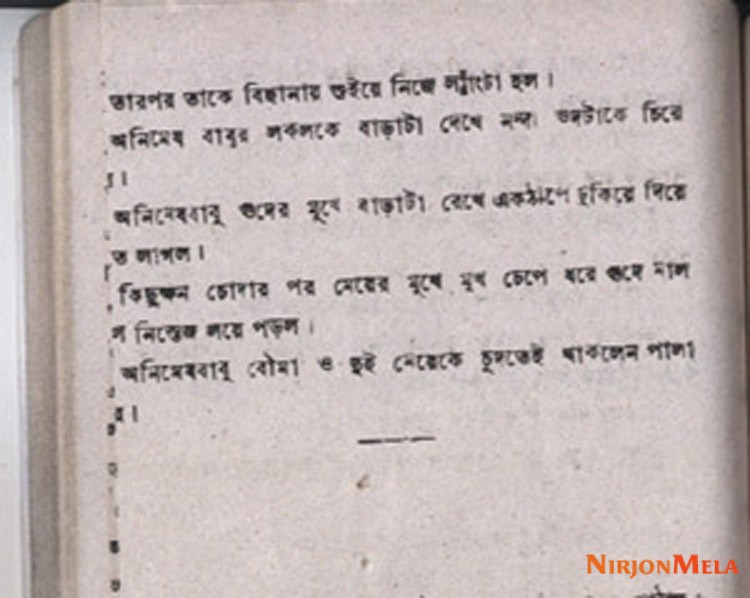 তারপর তাকে বিছানায় শুইয়ে নিজে ল্যাংটো হল।
অনিমেষ বাবুর লকলকে বাড়াটা দেখে গুদটাকে চিরে
।
অনিমেষবাবু গুদের মুখে বাড়াটা রেখে একঠাপে ঢুকিয়ে দিয়ে
ত লাগল।
কিছুক্ষন চোদার পর মেয়ের মুখে মুখ চেপে ধরে গুদে মাল
নিস্তেজ হয়ে পড়ল।
অনিমেষবাবু বৌমা ও দুই মেয়েকে চুদতেই থাকলেন পালা
।
NIRJONMELA